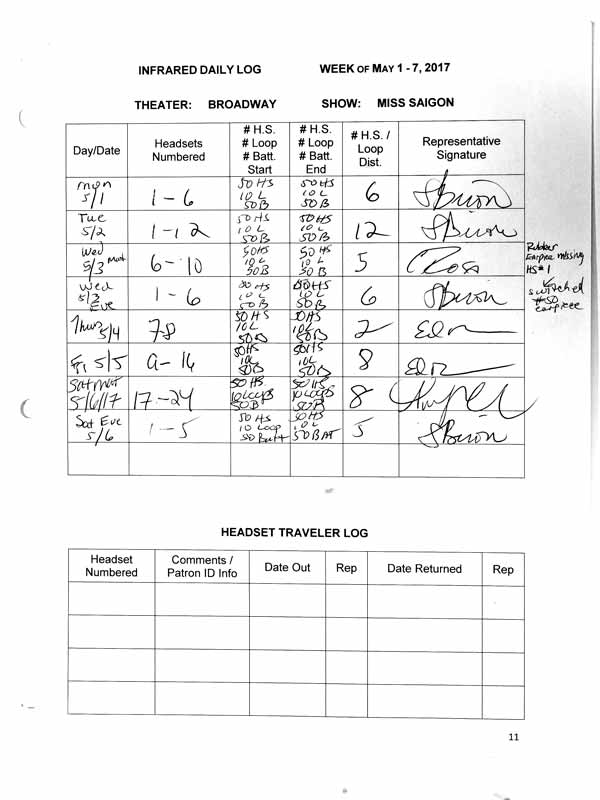 INFRARED DAILY LOG WEEK OF MAY 1 - 7, 2017
THEATER: BROADWAY SHOW: MISS SAIGON
Day/Date Headsets Numbered # H.S. # Loop # Batt. Start # H.S. # Loop # Batt. End # H.S. / Loop Dist. Representative Signature
Mon 5/1 1 - 6 50 HS 10 L 50 B 50 HS 10 L 50 B 6 SBiron
Tue 5/2 1 - 12 50 HS 10 L 50 B 50 HS 10 L 50 B 12 SBiron
Wed 5/3 Mat 6 - 10 50 HS 10 L 50 B 50 HS 10 L 50 B 5 CRoss
Rubber Earpiece missing HS#1
Wed 5/3 Eve 1 - 6 50 HS 10 L 50 B 50 HS 10 L 50 B 6 SBiron
switched #50 earpiece
Thurs 5/4 7-8 50 HS 10 L 50 B 50 HS 10 L 50 B 2
Fri 5/5 9 - 16 50 HS 10 L 50 B 50 HS 10 L 50 B 8
Sat Mat 5/6/17 17 - 24 50 HS 10 Loops 50 B 50 HS 10 Loops 50 B 8
Sat Eve 5/6 1 - 5 50 HS 10 Loop 50 Batt 50 HS 10 L 50 BAT 5 SBiron
HEADSET TRAVELER LOG
Headset Numbered Comments / Patron ID Info Date Out Rep Date Returned Rep
11